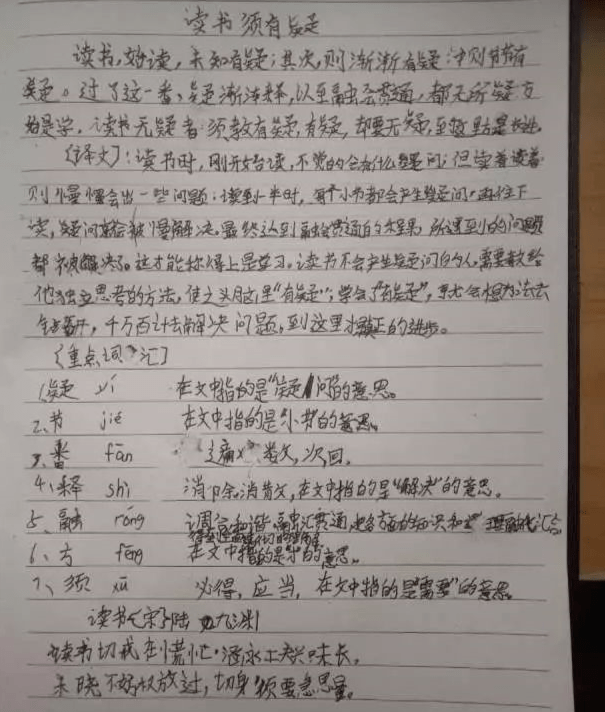 读书须有疑
读书,始读,未知有疑;其次,则渐渐有疑;中则节节有
疑。过了这一番,疑渐渐释,以至融会贯通,都无所疑方
始是学。读书无疑者须教有疑,有疑,却要无疑,至这里方是长进。
〔译文〕:读书时,刚开始读,不觉的会有什么疑问;但读着读着
则慢慢会出一些问题;读到一半时,每个小节都会产生疑问。再往下
读,疑问就会被慢慢解决。最终达到融会贯通的程度,所遇到的问题
都被解决了。这才能称得上是学习。读书不会产生疑问的人,需要教给
他独立思考的方法,使之头脑里"有疑";学会了"有疑",更会想方法去
解开,千方百计去解决问题,到这里才是真正的进步。
〔重点词汇〕
1、疑 yí 在文中指的是"疑问"的意思。
2、节 jié 在文中指的是"小节"的意思。
3、番 fān 遍 数次,次回。
4、释 shì 消除,消费,在文中指的是"解决"的意思。
5、融 róng 调合和谐,融汇贯通,把各方面的知识和
6、方 fāng 在文中指的是"才"的意思。
7、须 xū 必得,应当,在文中指的是"需要"的意思。
读书〈宋〉陆九渊
读书切戒在慌忙,涵泳工夫兴味长。
未晓不妨权放过,切身须要急思量。